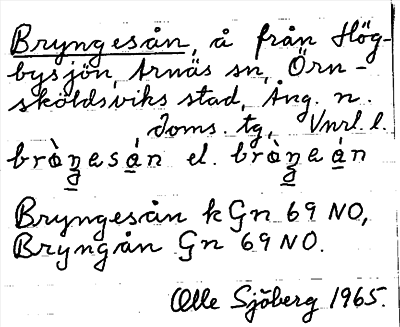 Bryngesån, å från Hög-
bysjön, Arnäs sn, Örn-
sköldsviks stad, Ång. n.
doms. tg, Vnrl l.
brὰŋesán el. brὰŋeán
Bryngesån k Gn 69 NO,
Bryngån Gn 69 NO.
Olle Sjöberg 1965.